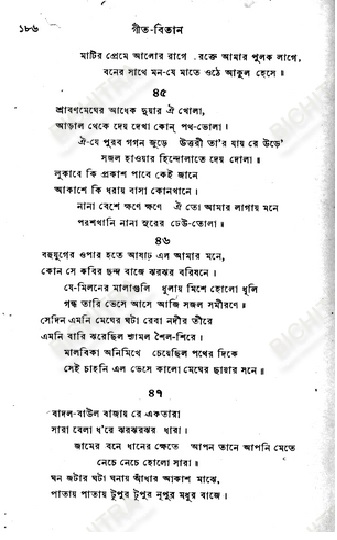 ১৮৬
গীত-বিতান
মাটির প্রেমে আলোর রাগে রক্তে আমার পুলক লাগে,
বনের সাথে মন-যে মাতে ওঠে আকুল হেসে॥
৪৫
শ্রাবণমেঘের আধেক দুয়ার ঐ খোলা,
আড়াল থেকে দেয় দেখা কোন্ পথ-ভোলা।
ঐ-যে পূরব গগন জুড়ে উত্তরী তা'র যায় রে উড়ে'
সজল হাওয়ার হিন্দোলাতে দেয় দোলা॥
লুকাবে কি প্রকাশ পাবে কেই জানে
আকাশে কি ধরায় বাসা কোনখানে।
নানা বেশে ক্ষণে ক্ষণে ঐ তো আমার লাগায় মনে
পরশখানি নানা সুরের ঢেউ-তোলা॥
৪৬
বহুযুগের ওপার হতে আষাঢ় এল আমার মনে,
কোন সে কবির ছন্দ বাজে ঝরঝর বরিষনে।
যে-মিলনের মালাগুলি ধুলায় মিশে হোলো ধূলি
গন্ধ তারি ভেসে আসে আজি সজল সমীরণে॥
সেদিন এমনি মেঘের ঘটা রেবা নদীর তীরে
এমনি বারি ঝরেছিল শ্যামল শৈল-শিরে।
মালবিকা অনিমিখে চেয়েছিল পথের দিকে
সেই চাহনি এল ভেসে কালো মেঘের ছায়ার সনে॥
৪৭
বাদল-বাউল বাজায় রে একতারা
সারা বেলা ধ'রে ঝরঝরঝর ধারা।
জামের বনে ধানের ক্ষেতে আপন তানে আপনি মেতে
নেচে নেচে হোলো সারা॥
ঘন জটার ঘটা ঘনায় আঁধার আকাশ মাঝে,
পাতায় পাতায় টুপুর টুপুর নূপুর মধুর বাজে।
BICHITRA